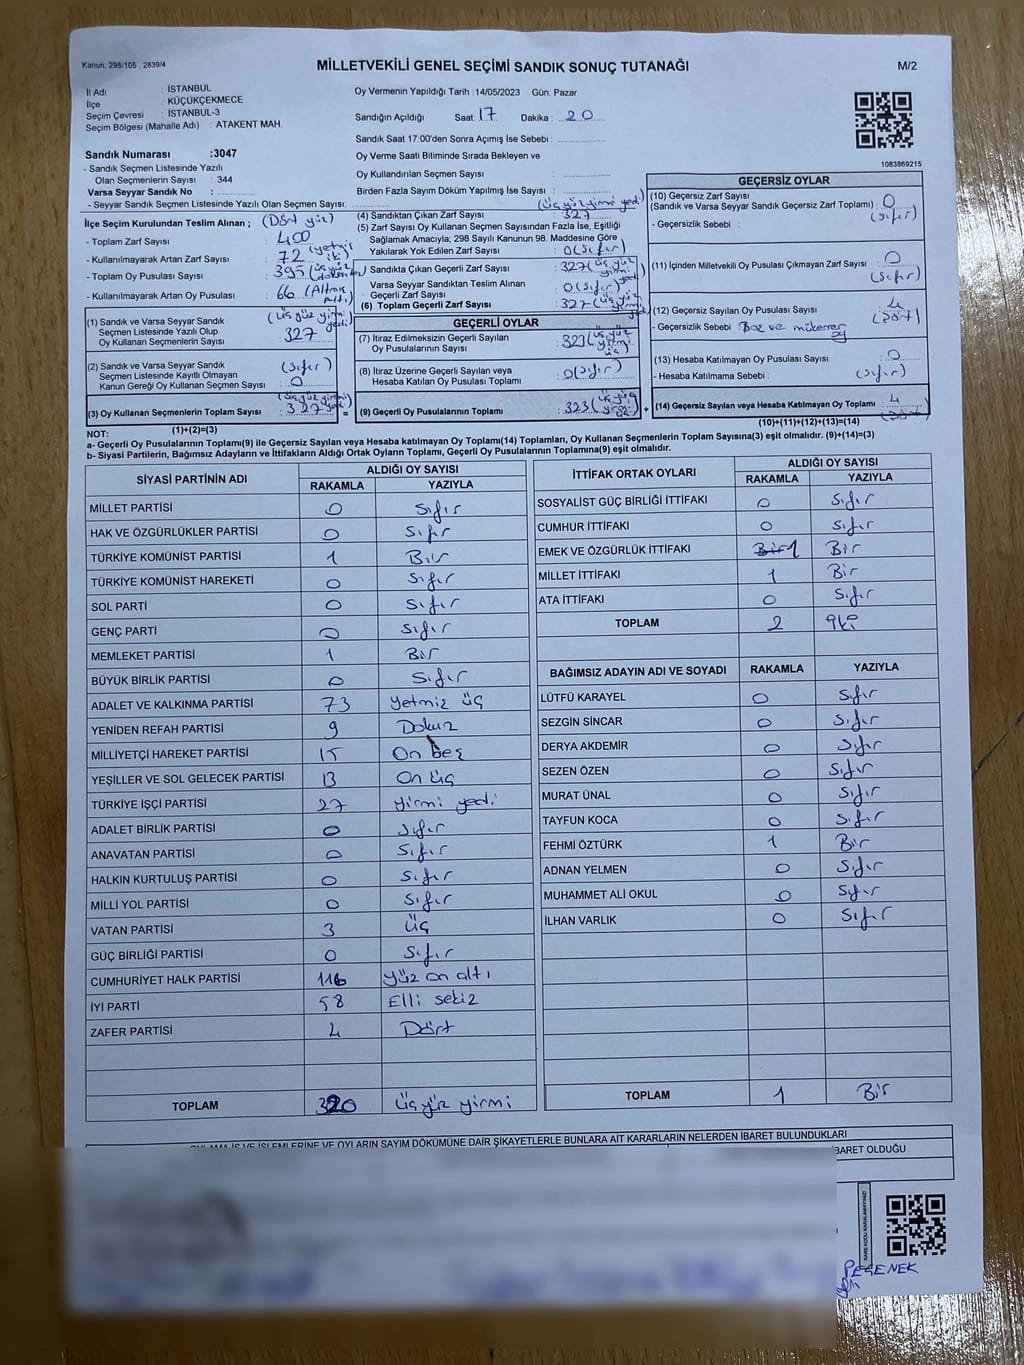 Kanun, 298/105 , 2839/4
MİLLETVEKİLİ GENEL SEÇİMİ SANDIK SONUÇ TUTANAĞI
M/2
İl Adı : İSTANBUL
İlçe : KÜÇÜKÇEKMECE
Seçim Çevresi : İSTANBUL-3
Seçim Bölgesi (Mahalle Adı) : ATAKENT MAH.
Oy Vermenin Yapıldığı Tarih :14/05/2023 Gün: Pazar
Sandığın Açıldığı Saat: 17 Dakika : 20
Sandık Saat 17:00'den Sonra Açımış İse Sebebi :
Oy Verme Saati Bitiminde Sırada Bekleyen ve
Oy Kullandırılan Seçmen Sayısı :
Birden Fazla Sayım Döküm Yapılmış İse Sayısı :
1083869215
Sandık Numarası :3047
- Sandık Seçmen Listesinde Yazılı
Olan Seçmenlerin Sayısı : 344
Varsa Seyyar Sandık No :
- Seyyar Sandık Seçmen Listesinde Yazılı Olan Seçmen Sayısı:
İlçe Seçim Kurulundan Teslim Alınan ; (Dört yüz)
- Toplam Zarf Sayısı : 400
- Kullanılmayarak Artan Zarf Sayısı : 72 (yetmiş iki)
- Toplam Oy Pusulası Sayısı : 395 (üç yüz
- Kullanılmayarak Artan Oy Pusulası : 66 (Altmış altı)
(1) Sandık ve Varsa Seyyar Sandık (üç yüz yirmi yedi)
Seçmen Listesinde Yazılı Olup
Oy Kullanan Seçmenlerin Sayısı : 327
(2) Sandık ve Varsa Seyyar Sandık (sıfır)
Seçmen Listesinde Kayıtlı Olmayan
Kanun Gereği Oy Kullanan Seçmen Sayısı : 0
(3) Oy Kullanan Seçmenlerin Toplam Sayısı : 327 (üç yüz yirmi yedi) =
(1)+(2)=(3)
(üç yüz yirmi yedi)
(4) Sandıktan Çıkan Zarf Sayısı : 327
(5) Zarf Sayısı Oy Kullanan Seçmen Sayısından Fazla İse, Eşitliği
Sağlamak Amacıyla; 298 Sayılı Kanunun 98. Maddesine Göre
Yakılarak Yok Edilen Zarf Sayısı : 0 (sıfır)
Sandıkta Çıkan Geçerli Zarf Sayısı : 327 (üç yüz yirmi yedi)
Varsa Seyyar Sandıktan Teslim Alınan
Geçerli Zarf Sayısı : 0 (sıfır)
(6) Toplam Geçerli Zarf Sayısı : 327 (üç yüz yirmi yedi)
GEÇERLİ OYLAR
(7) İtiraz Edilmeksizin Geçerli Sayılan
Oy Pusulalarının Sayısı : 323 (üç yüz yirmi üç)
(8) İtiraz Üzerine Geçerli Sayılan veya
Hesaba Katılan Oy Pusulası Toplamı : 0 (sıfır)
(9) Geçerli Oy Pusulalarının Toplamı : 323 (üç yüz yirmi üç) +
GEÇERSİZ OYLAR
(10) Geçersiz Zarf Sayısı
(Sandık ve Varsa Seyyar Sandık Geçersiz Zarf Toplamı) : 0 (sıfır)
- Geçersizlik Sebebi :
(11) İçinden Milletvekili Oy Pusulası Çıkmayan Zarf Sayısı : 0 (sıfır)
(12) Geçersiz Sayılan Oy Pusulası Sayısı : 4 (Dört)
- Geçersizlik Sebebi : Boş ve mükerrer oy
(13) Hesaba Katılmayan Oy Pusulası Sayısı : 0
- Hesaba Katılmama Sebebi : (sıfır)
(14) Geçersiz Sayılan veya Hesaba Katılmayan Oy Toplamı : 4 (Dört)
(10)+(11)+(12)+(13)=(14)
NOT:
a- Geçerli Oy Pusulalarının Toplamı(9) ile Geçersiz Sayılan veya Hesaba katılmayan Oy Toplamı(14) Toplamları, Oy Kullanan Seçmenlerin Toplam Sayısına(3) eşit olmalıdır. (9)+(14)=(3)
b- Siyasi Partilerin, Bağımsız Adayların ve İttifakların Aldığı Ortak Oyların Toplamı, Geçerli Oy Pusulalarının Toplamına(9) eşit olmalıdır.
SİYASİ PARTİNİN ADI ALDIĞI OY SAYISI
RAKAMLA YAZIYLA
MİLLET PARTİSİ 0 Sıfır
HAK VE ÖZGÜRLÜKLER PARTİSİ 0 Sıfır
TÜRKİYE KOMÜNİST PARTİSİ 1 Bir
TÜRKİYE KOMÜNİST HAREKETİ 0 Sıfır
SOL PARTİ 0 Sıfır
GENÇ PARTİ 0 Sıfır
MEMLEKET PARTİSİ 1 Bir
BÜYÜK BİRLİK PARTİSİ 0 Sıfır
ADALET VE KALKINMA PARTİSİ 73 Yetmiş üç
YENİDEN REFAH PARTİSİ 9 Dokuz
MİLLİYETÇİ HAREKET PARTİSİ 15 On beş
YEŞİLLER VE SOL GELECEK PARTİSİ 13 On üç
TÜRKİYE İŞÇİ PARTİSİ 27 Yirmi yedi
ADALET BİRLİK PARTİSİ 0 Sıfır
ANAVATAN PARTİSİ 0 Sıfır
HALKIN KURTULUŞ PARTİSİ 0 Sıfır
MİLLİ YOL PARTİSİ 0 Sıfır
VATAN PARTİSİ 3 Üç
GÜÇ BİRLİĞİ PARTİSİ 0 Sıfır
CUMHURİYET HALK PARTİSİ 116 Yüz on altı
İYİ PARTİ 58 Elli sekiz
ZAFER PARTİSİ 4 Dört
TOPLAM 320 Üç yüz yirmi
İTTİFAK ORTAK OYLARI ALDIĞI OY SAYISI
RAKAMLA YAZIYLA
SOSYALİST GÜÇ BİRLİĞİ İTTİFAKI 0 Sıfır
CUMHUR İTTİFAKI 0 Sıfır
EMEK VE ÖZGÜRLÜK İTTİFAKI Bir 1 Bir
MİLLET İTTİFAKI 1 Bir
ATA İTTİFAKI 0 Sıfır
TOPLAM 2 iki
BAĞIMSIZ ADAYIN ADI VE SOYADI RAKAMLA YAZIYLA
LÜTFÜ KARAYEL 0 Sıfır
SEZGİN SİNCAR 0 Sıfır
DERYA AKDEMİR 0 Sıfır
SEZEN ÖZEN 0 Sıfır
MURAT ÜNAL 0 Sıfır
TAYFUN KOCA 0 Sıfır
FEHMİ ÖZTÜRK 1 Bir
ADNAN YELMEN 0 Sıfır
MUHAMMET ALİ OKUL 0 Sıfır
İLHAN VARLIK 0 Sıfır
TOPLAM 1 Bir
OYLAMA İŞ VE İŞLEMLERİNE VE OYLARIN SAYIM DÖKÜMÜNE DAİR ŞİKAYETLERLE BUNLARA AİT KARARLARIN NELERDEN İBARET BULUNDUKLARI
BARET OLDUĞU
KARE KODU KARALAMAYINIZ!
PEÇENEK